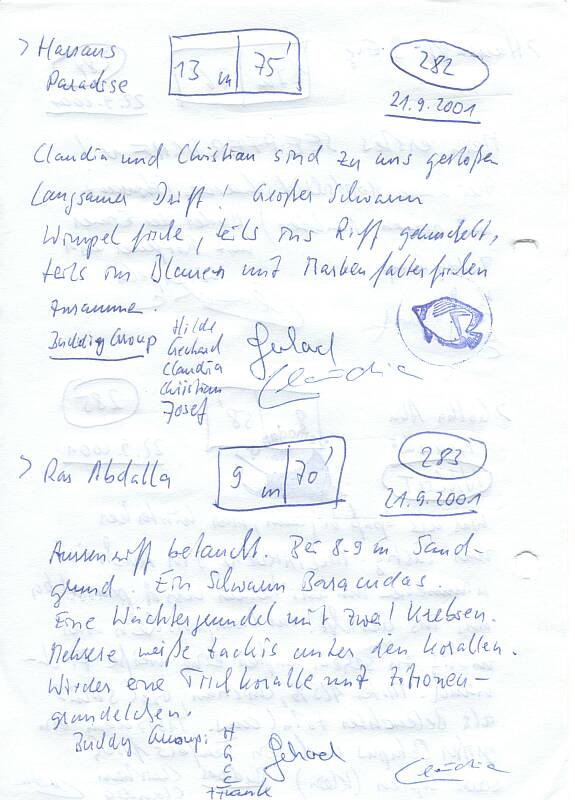 > Hanans
Paradise
13 m 75'
282
21.9.2001
Claudia und Christian sind zu uns gestoßen
Langsamer Drift! Großer Schwarm
Wimpelfische, teils ins Riff gekuschelt,
teils im Blauen mit Maskenfalterfischen
zusammen.
Buddy Group
Hilde
Gerhard
Claudia
Christian
Josef
Gerhard
Claudia
> Ras Abdalla
9 m 70'
283
21.9.2001
Aussenriff betaucht. Bei 8-9 m Sand-
grund. Ein Schwarm Baracudas.
Eine Wächtergrundel mit zwei! Krebsen.
Mehrere weiße unter den Korallen.
Wieder eine Tischkoralle mit Zitronen-
grundelchen.
Buddy Group:
H
G
C
C
Frank
Gerhard
Claudia